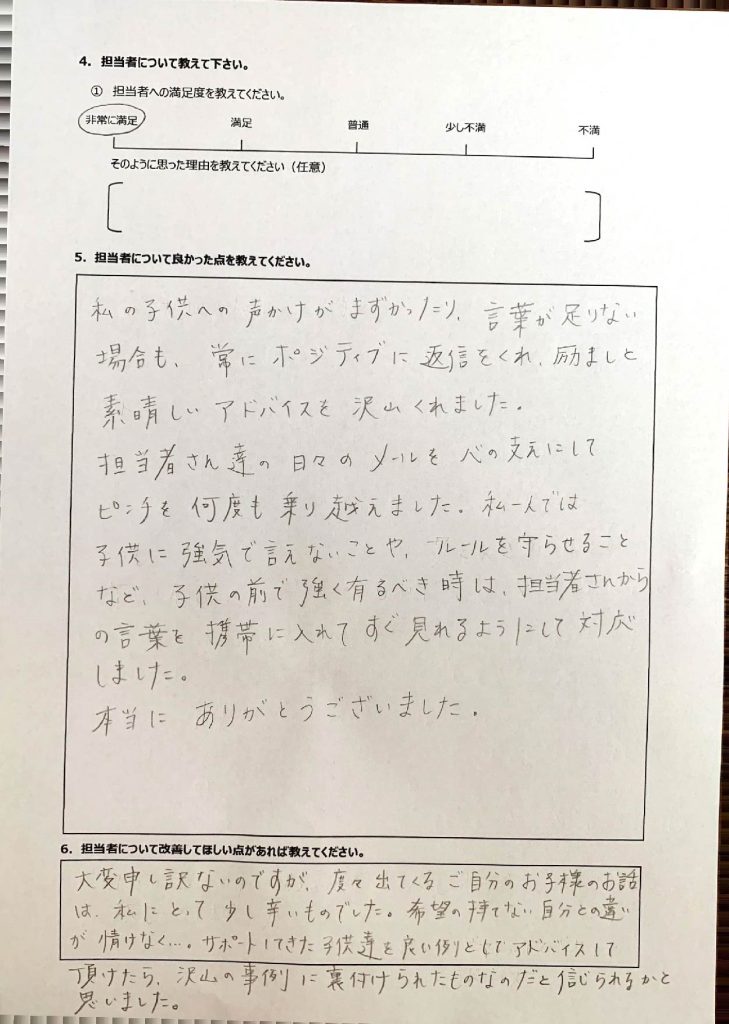 4．担当者について教えて下さい。
① 担当者への満足度を教えてください。
非常に満足 満足 普通 少し不満 不満
そのように思った理由を教えてください（任意）
5．担当者について良かった点を教えてください。
私の子供への声かけがまずかったり、言葉が足りない
場合も、常にポジティブに返信をくれ、励ましと
素晴しいアドバイスを沢山くれました。
担当者さん達の日々のメールを心の支えにして
ピンチを何度も乗り越えました。私一人では
子供に強気で言えないことや、ルールを守らせること
など、子供の前で強く有るべき時は、担当者さんから
の言葉を携帯に入れてすぐ見れるようにして対応
しました。
本当にありがとうございました。
6．担当者について改善してほしい点があれば教えてください。
大変申し訳ないのですが、度々出てくるご自分のお子様のお話
は、私にとって少し辛いものでした。希望の持てない自分との違い
が情けなく…。サポートしてきた子供達を良い例としてアドバイスして
頂けたら、沢山の事例に裏付けられたものなのだと信じられるかと
思いました。